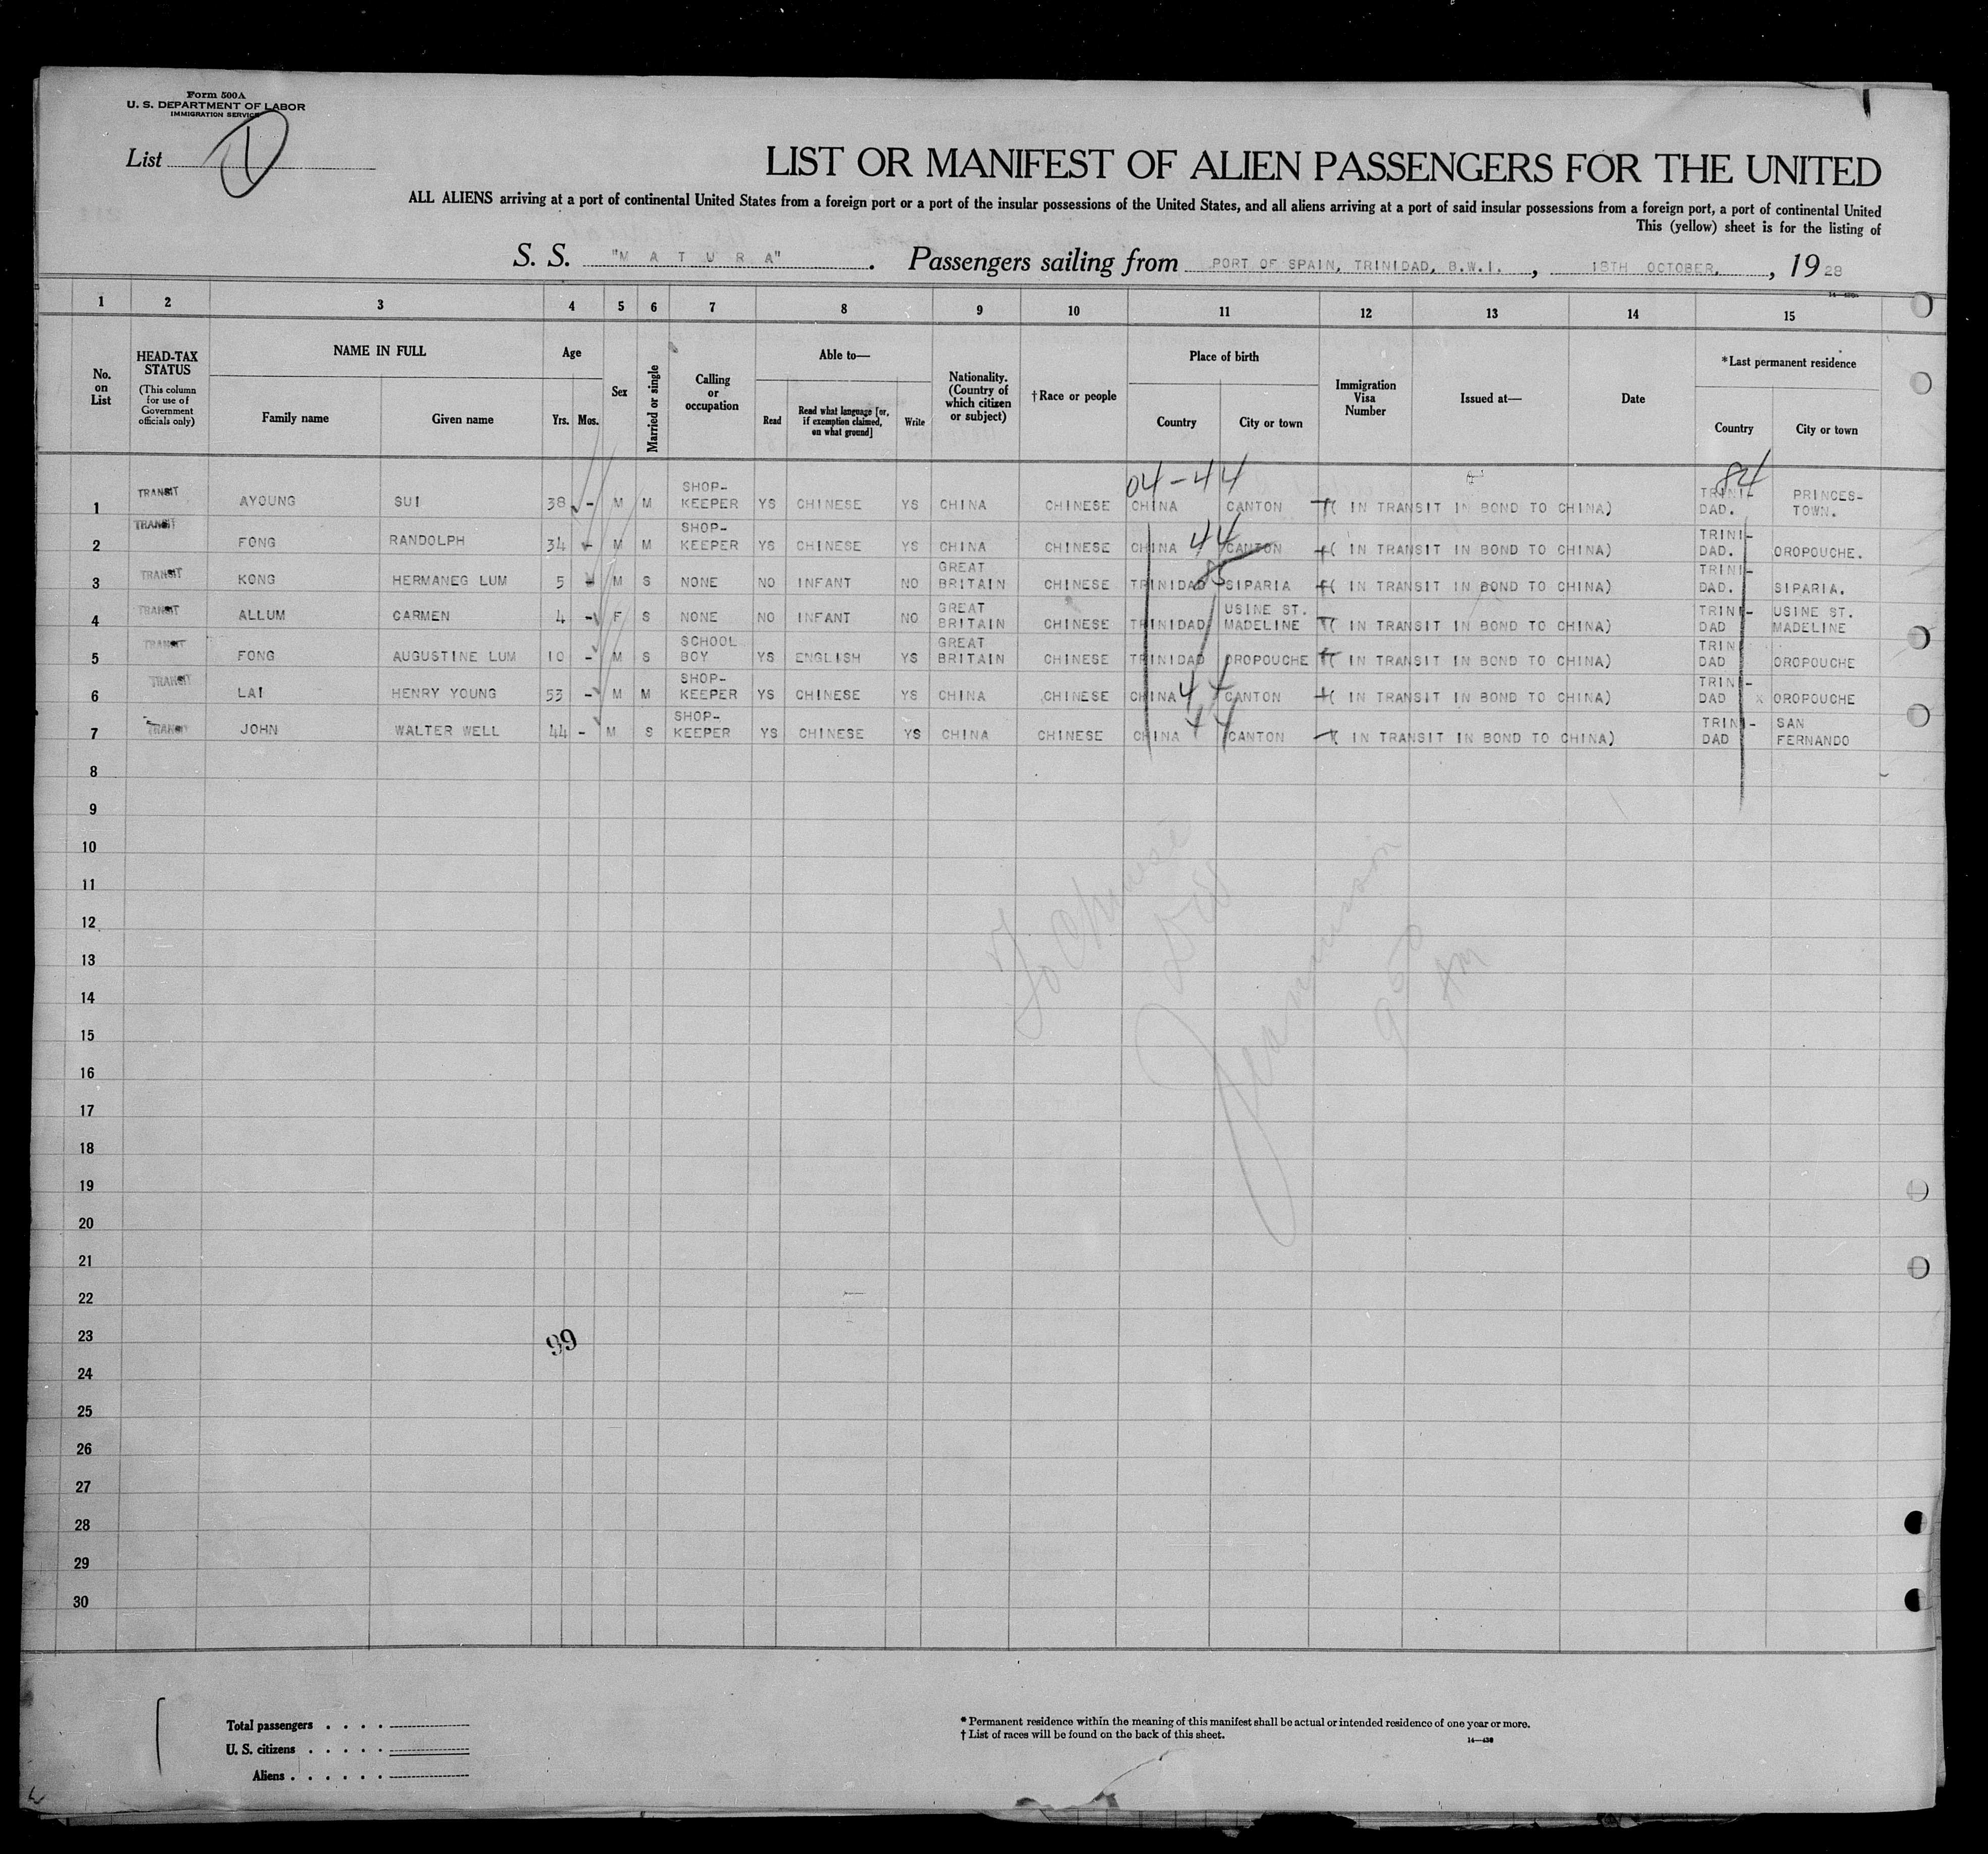 Form 500A
U. S. DEPARTMENT OF LABOR
IMMIGRATION SERVICE
List 1
LIST OR MANIFEST OF ALIEN PASSENGERS FOR THE UNITED
ALL ALIENS arriving at a port of continental United States from a foreign port or a port of the insular possessions of the United States, and all aliens arriving at a port of said insular possessions from a foreign port, a port of continental United
This (yellow) sheet is for the listing of
S. S. "M A T U R A". Passengers sailing from PORT OF SPAIN, TRINIDAD, B.W.I., 18TH OCTOBER, , 1928
1 2 3 4 5 6 7 8 9 10 11 12 13 14 15
No. on List
HEAD-TAX STATUS (This column for use of Government officials only)
NAME IN FULL Family name Given name
Age Yrs. Mos.
Sex
Married or single
Calling or occupation
Able to— Read Read what language [or, if exemption claimed, on what ground] Write
Nationality. (Country of which citizen or subject)
†Race or people
Place of birth Country City or town
Immigration Visa Number
Issued at—
Date
*Last permanent residence Country City or town
04-44 84
1 TRANSIT AYOUNG SUI 38 - M M SHOP-KEEPER YS CHINESE YS CHINA CHINESE CHINA CANTON ( IN TRANSIT IN BOND TO CHINA) TRINI-DAD. PRINCES-TOWN.
2 TRANSIT FONG RANDOLPH 34 - M M SHOP-KEEPER YS CHINESE YS CHINA CHINESE CHINA 44 CANTON ( IN TRANSIT IN BOND TO CHINA) TRINI-DAD. OROPOUCHE.
3 TRANSIT KONG HERMANEG LUM 5 - M S NONE NO INFANT NO GREAT BRITAIN CHINESE TRINIDAD 85 SIPARIA ( IN TRANSIT IN BOND TO CHINA) TRINI-DAD. SIPARIA.
4 TRANSIT ALLUM CARMEN 4 - F S NONE NO INFANT NO GREAT BRITAIN CHINESE TRINIDAD USINE ST. MADELINE ( IN TRANSIT IN BOND TO CHINA) TRINI-DAD USINE ST. MADELINE
5 TRANSIT FONG AUGUSTINE LUM 10 - M S SCHOOL BOY YS ENGLISH YS GREAT BRITAIN CHINESE TRINIDAD OROPOUCHE ( IN TRANSIT IN BOND TO CHINA) TRINI-DAD OROPOUCHE
6 TRANSIT LAI HENRY YOUNG 53 - M M SHOP-KEEPER YS CHINESE YS CHINA CHINESE CHINA 44 CANTON ( IN TRANSIT IN BOND TO CHINA) TRINI-DAD x OROPOUCHE
7 TRANSIT JOHN WALTER WELL 44 - M S SHOP-KEEPER YS CHINESE YS CHINA CHINESE CHINA 44 CANTON ( IN TRANSIT IN BOND TO CHINA) TRINI-DAD SAN FERNANDO
8
9
10
11
12
13
14
15
16
17
18
19
20
21
22
23
24
25
26
27
28
29
30
To Chinese
950
AM
99
Total passengers . . . .
U. S. citizens . . . . .
Aliens . . . . . .
* Permanent residence within the meaning of this manifest shall be actual or intended residence of one year or more.
† List of races will be found on the back of this sheet.
14—430